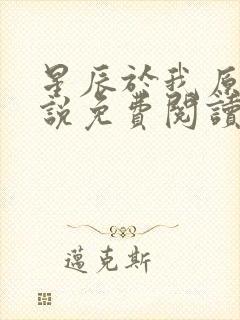 星辰於我原
說免費閱讀
邁克斯